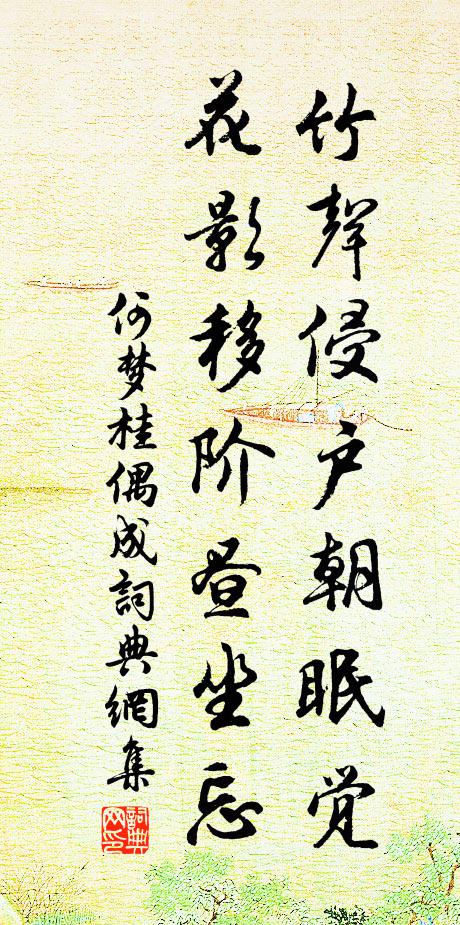 竹聲侵户朝眠觉
花影移阶昼坐忘
何梦桂偶成詞典網集
詞典
网印